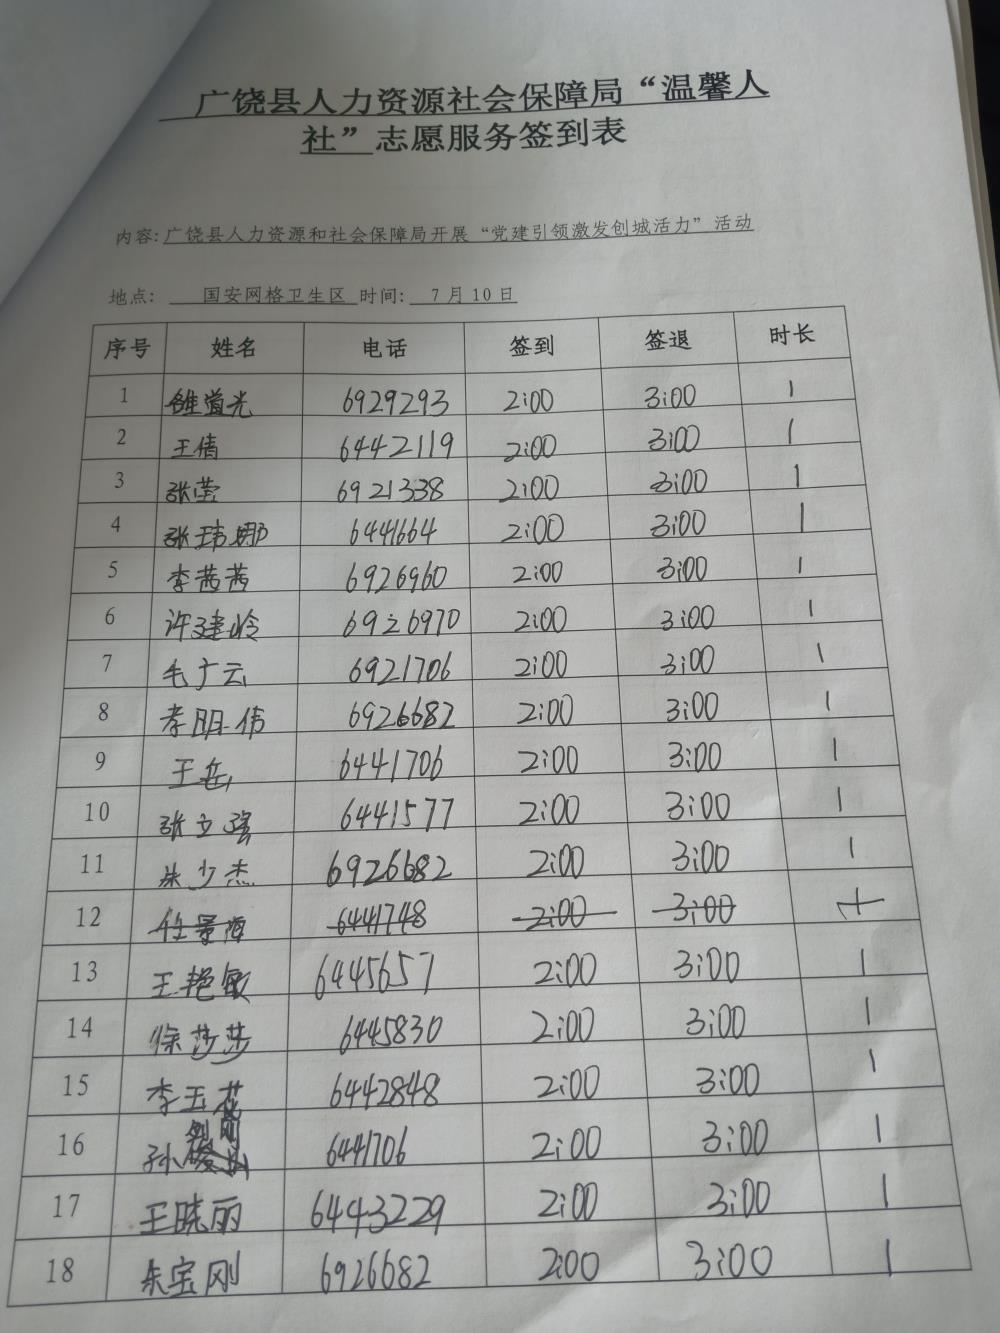 广饶县人力资源社会保障局“温馨人
社”志愿服务签到表
内容:广饶县人力资源和社会保障局开展“党建引领激发创城活力”活动
地点: 国安网格卫生区 时间: 7月10日
序号 姓名 电话 签到 签退 时长
1 雒道光 6929293 2:00 3:00 1
2 王倩 6442119 2:00 3:00 1
3 张莹 6921338 2:00 3:00 1
4 张玮娜 6441664 2:00 3:00 1
5 李茜茜 6926960 2:00 3:00 1
6 许建岭 6926970 2:00 3:00 1
7 毛广云 6921706 2:00 3:00 1
8 李明伟 6926682 2:00 3:00 1
9 王岳 6441706 2:00 3:00 1
10 张立强 6441577 2:00 3:00 1
11 朱少杰 6926682 2:00 3:00 1
12 任景海 6441748 2:00 3:00 1
13 王艳敏 6445657 2:00 3:00 1
14 徐莎莎 6445830 2:00 3:00 1
15 李玉花 6442848 2:00 3:00 1
16 孙 6441706 2:00 3:00 1
17 王晓丽 6443229 2:00 3:00 1
18 朱宝刚 6926682 2:00 3:00 1